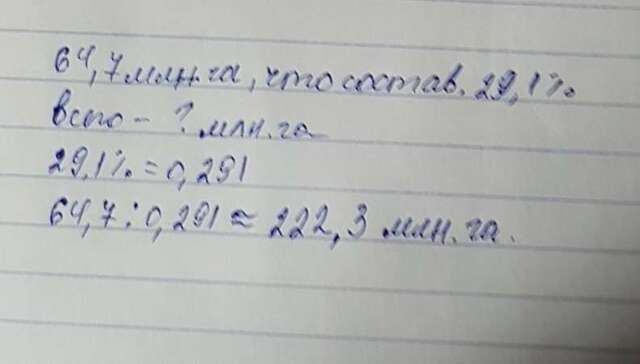 64,7 млн.га, что состав. 29,1%
всго - ? млн.га
29,1% = 0,291
64,7 : 0,291 ≈ 222,3 млн.га.